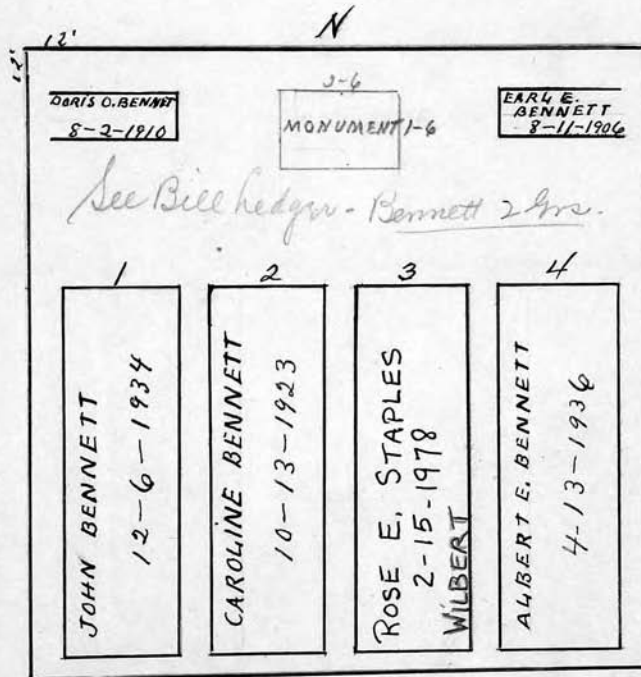 N
12'
12'
DORIS O. BENNET
8-2-1910
MONUMENT 1-6
EARL E.
BENNETT
8-11-1906
See Bill Ledger - Bennett 2 Grs.
1
2
3
4
JOHN BENNETT
12-6-1934
CAROLINE BENNETT
10-13-1923
ROSE E. STAPLES
2-15-1978
WILBERT
ALBERT E. BENNETT
4-13-1936